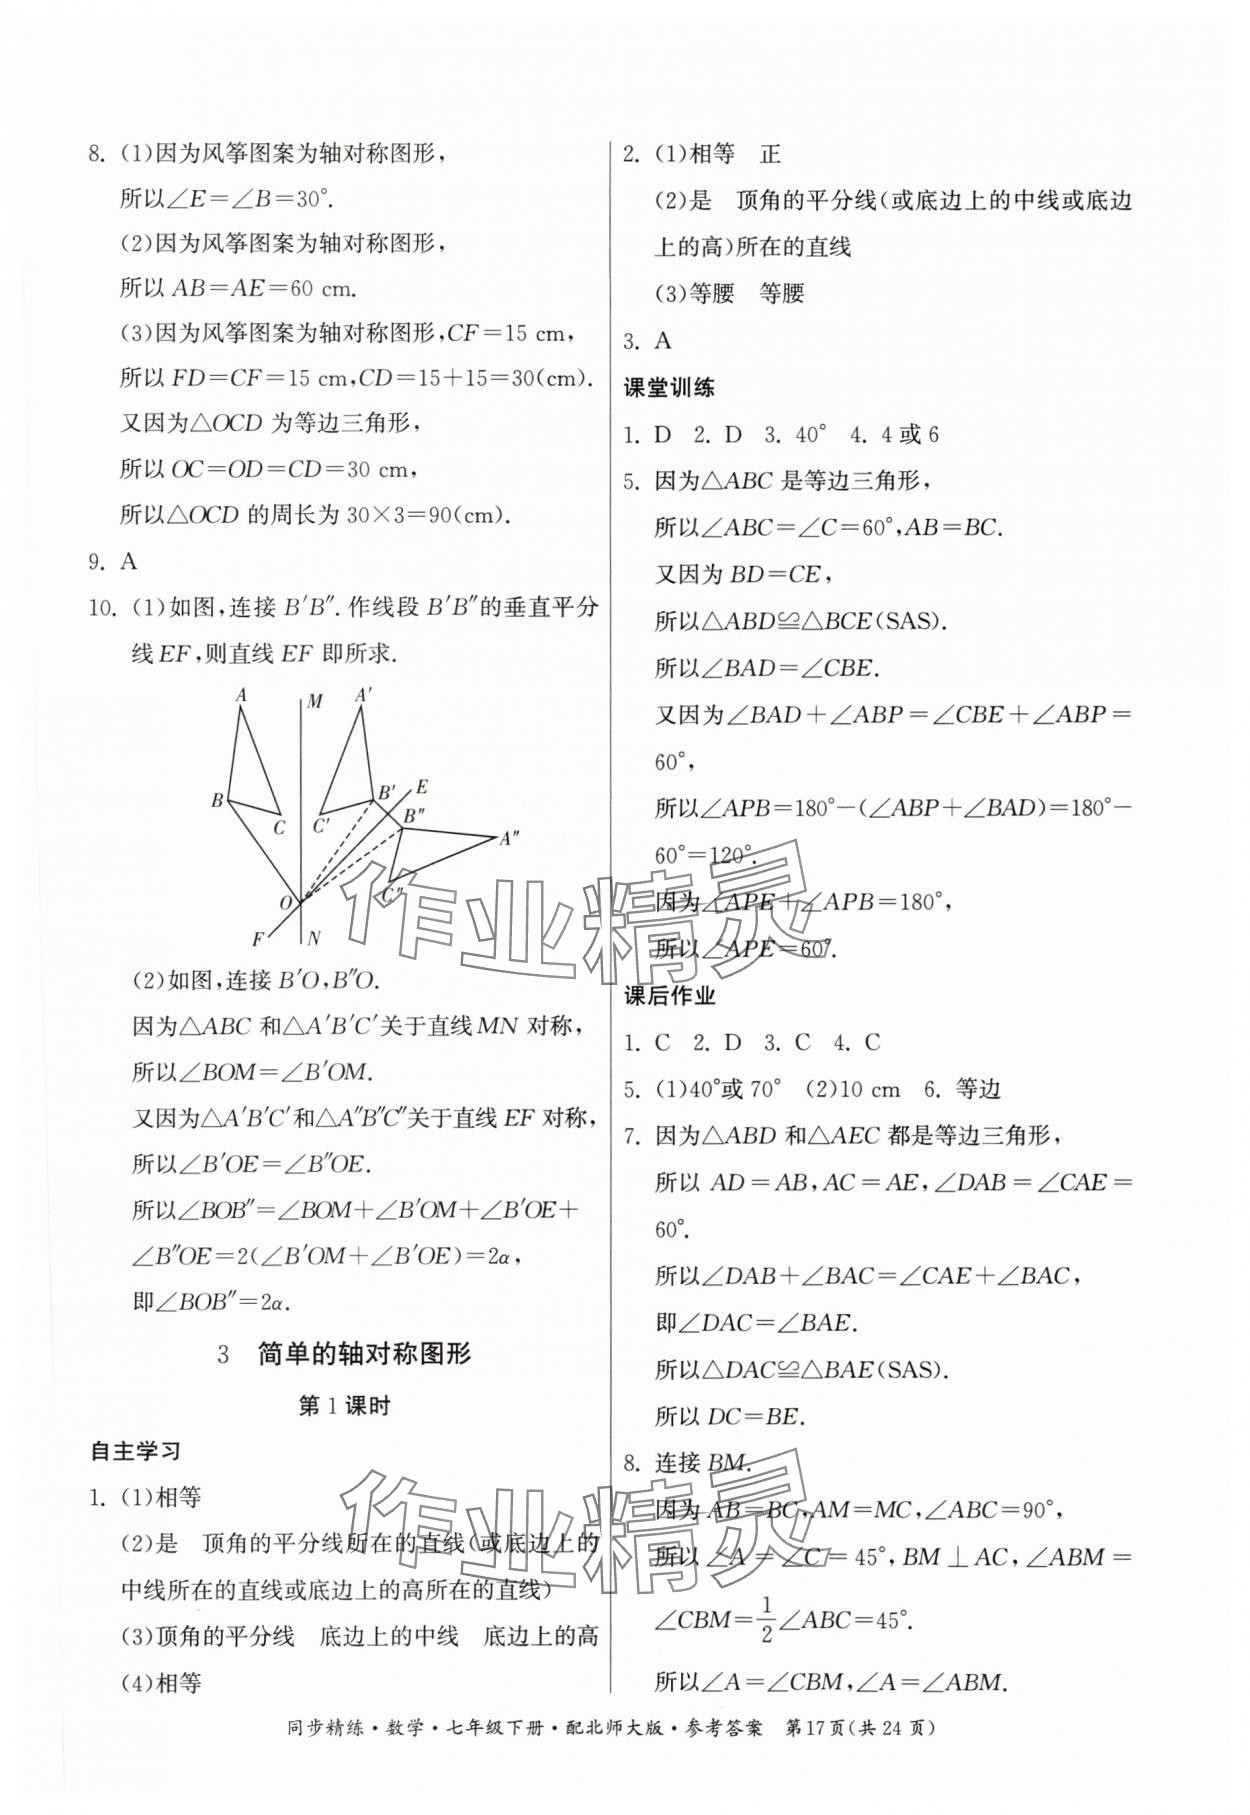 8. (1)因为风筝图案为轴对称图形,
所以∠E=∠B=30°.
(2)因为风筝图案为轴对称图形,
所以 AB=AE=60 cm.
(3)因为风筝图案为轴对称图形,CF=15 cm,
所以 FD=CF=15 cm,CD=15+15=30(cm).
又因为△OCD 为等边三角形,
所以 OC=OD=CD=30 cm,
所以△OCD 的周长为 30×3=90(cm).
9. A
10. (1)如图,连接 B′B″. 作线段 B′B″的垂直平分
线 EF,则直线 EF 即所求.
A M A′
B C C′ B′ E
B″ A″
C″
O
F N
(2)如图,连接 B′O,B″O.
因为△ABC 和△A′B′C′关于直线 MN 对称,
所以∠BOM=∠B′OM.
又因为△A′B′C′和△A″B″C″关于直线 EF 对称,
所以∠B′OE=∠B″OE.
所以∠BOB″=∠BOM+∠B′OM+∠B′OE+
∠B″OE=2(∠B′OM+∠B′OE)=2α,
即∠BOB″=2α.
3 简单的轴对称图形
第 1 课时
自主学习
1. (1)相等
(2)是 顶角的平分线所在的直线(或底边上的
中线所在的直线或底边上的高所在的直线)
(3)顶角的平分线 底边上的中线 底边上的高
(4)相等
2. (1)相等 正
(2)是 顶角的平分线(或底边上的中线或底边
上的高)所在的直线
(3)等腰 等腰
3. A
课堂训练
1. D 2. D 3. 40° 4. 4 或 6
5. 因为△ABC 是等边三角形,
所以∠ABC=∠C=60°,AB=BC.
又因为 BD=CE,
所以△ABD≌△BCE(SAS).
所以∠BAD=∠CBE.
又因为∠BAD+∠ABP=∠CBE+∠ABP=
60°,
所以∠APB=180°-(∠ABP+∠BAD)=180°-
60°=120°.
因为∠APE+∠APB=180°,
所以∠APE=60°.
课后作业
1. C 2. D 3. C 4. C
5. (1)40°或 70° (2)10 cm 6. 等边
7. 因为△ABD 和△AEC 都是等边三角形,
所以 AD=AB,AC=AE,∠DAB=∠CAE=
60°.
所以∠DAB+∠BAC=∠CAE+∠BAC,
即∠DAC=∠BAE.
所以△DAC≌△BAE(SAS).
所以 DC=BE.
8. 连接 BM.
因为 AB=BC,AM=MC,∠ABC=90°,
所以∠A=∠C=45°,BM⊥AC,∠ABM=
∠CBM=1/2∠ABC=45°.
所以∠A=∠CBM,∠A=∠ABM.
同步精练·数学·七年级下册·配北师大版·参考答案 第17页(共 24 页)
作业精灵
作业精灵